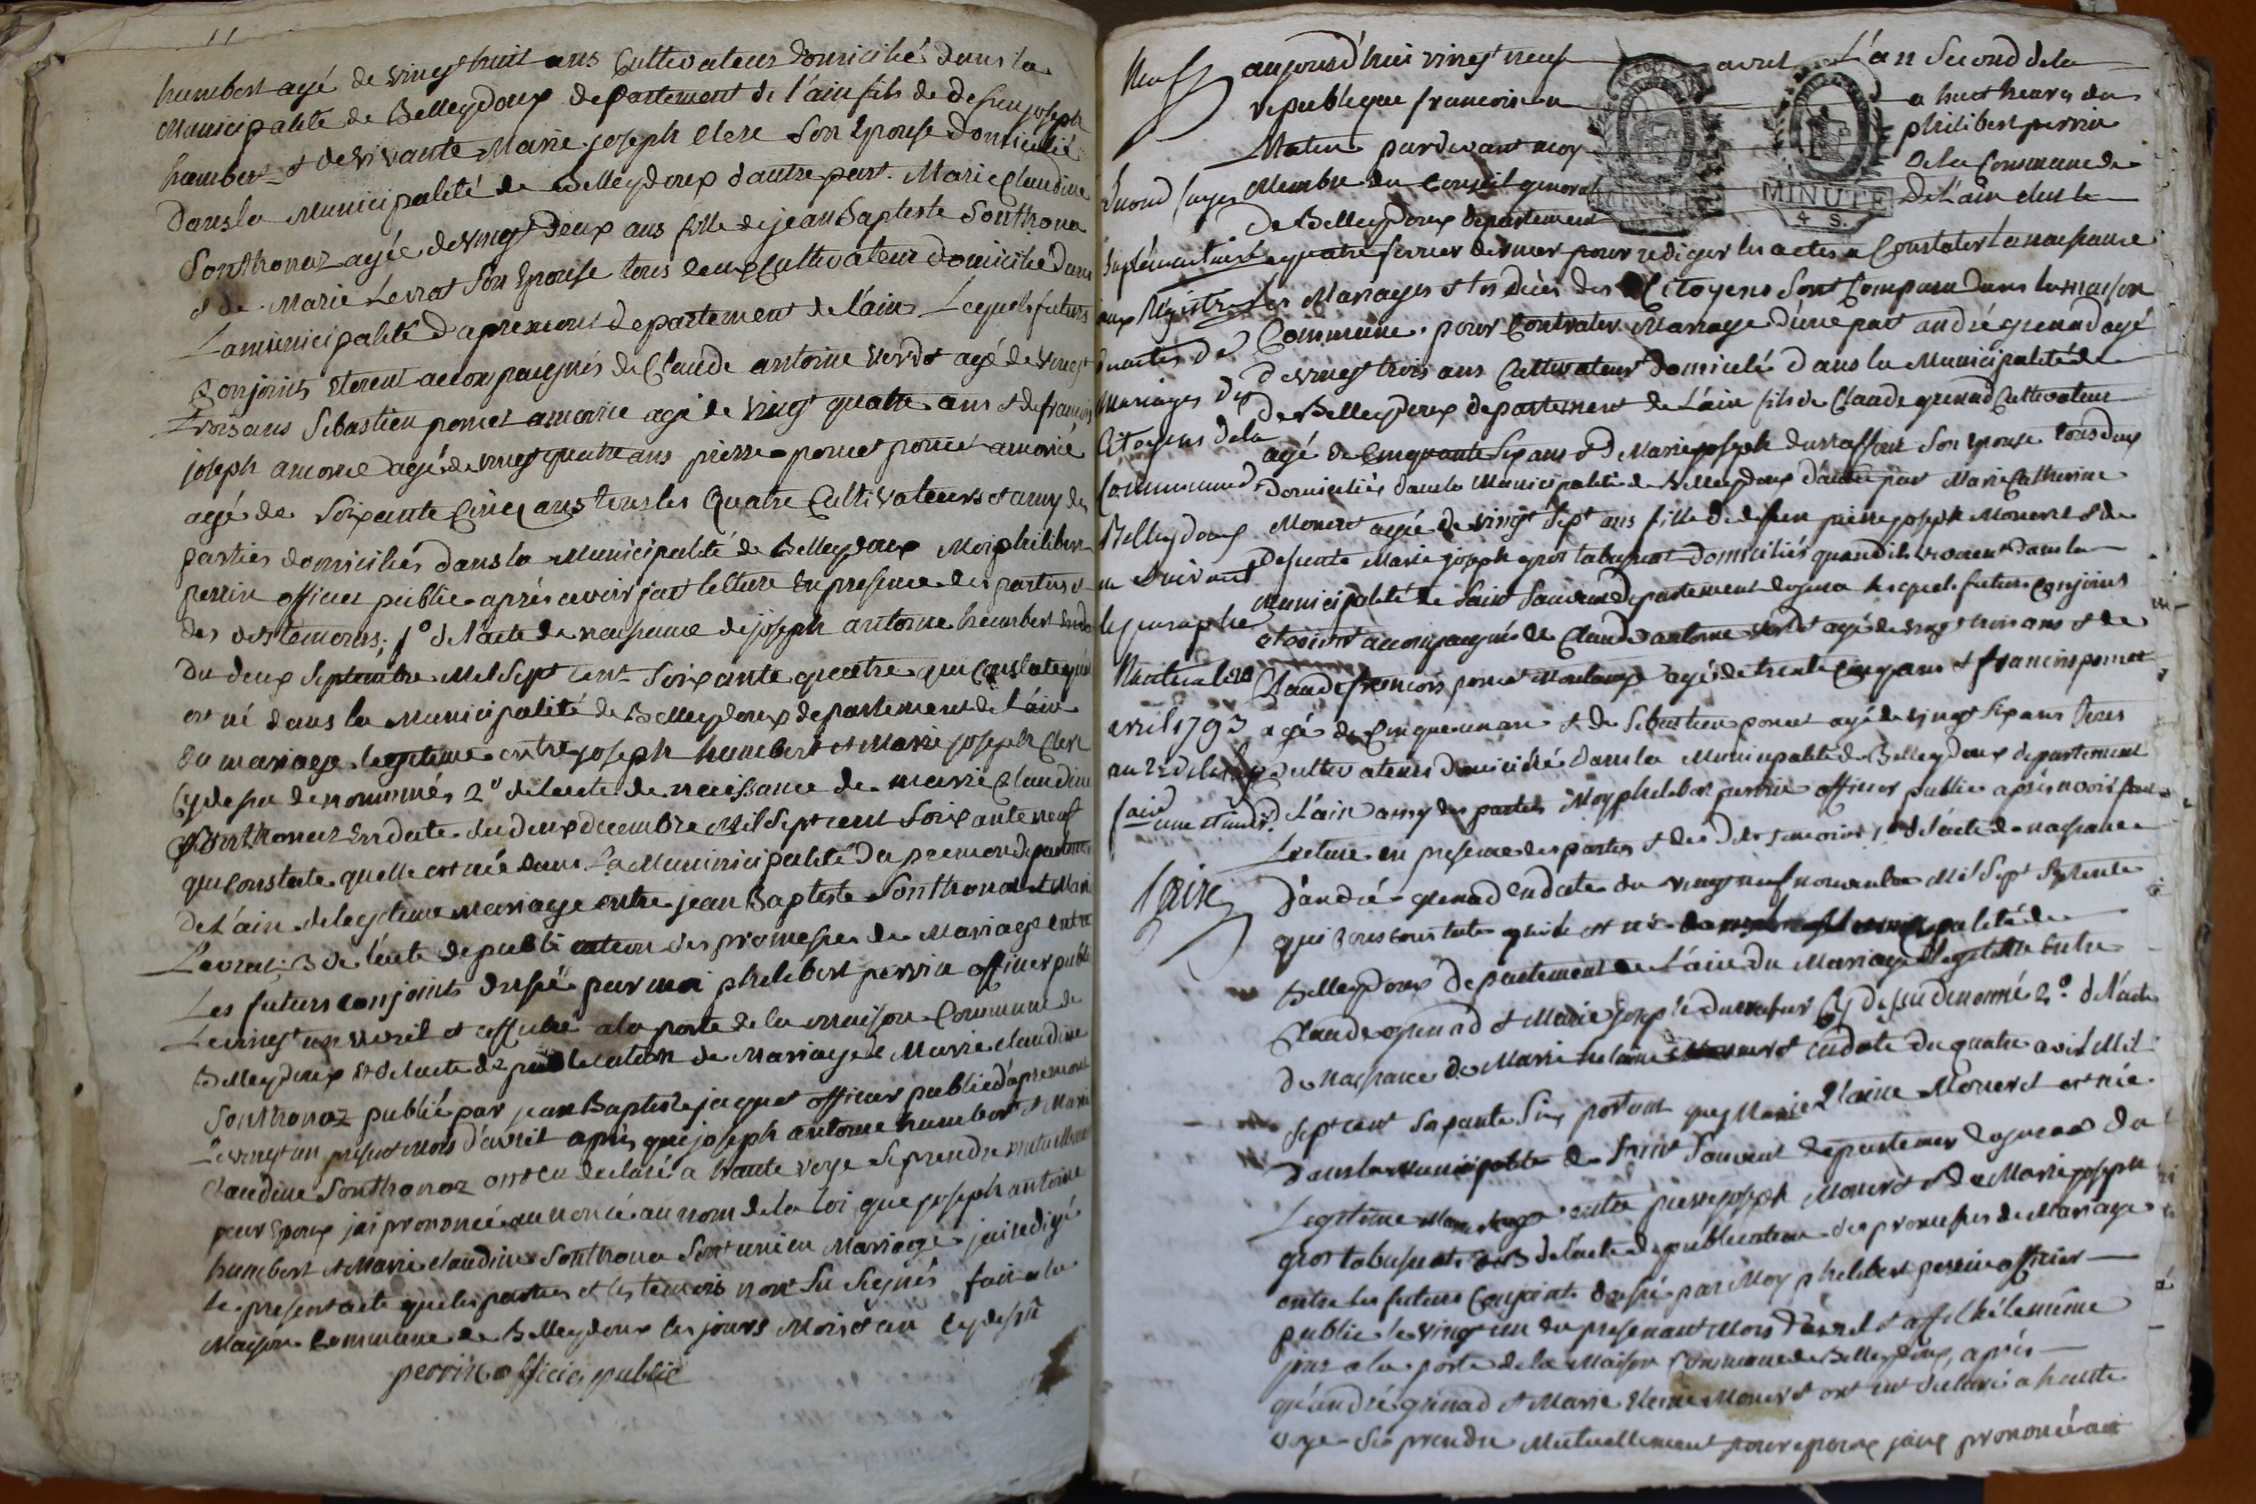 humbert agé de vingt huit ans Cultivateur domicilié dans la
Municipalité de Belleydoux departement de l'ain fils de defeu joseph
humbert & de vivante Marie joseph Clerc Son Epouse domicilié
dans la Municipalité de Belleydoux d'autre part. Marie Claudine
Sonthonaz agée de vingt Deux ans fille de jean Baptiste Sonthona
& de Marie Levrat Son Epouse tous deux Cultivateur domicilié dans
La municipalité d'apremont departement de l'ain Lequels futurs
Conjoints etoient accompagnés de Claude antoine verdet agé de vingt
trois ans Sebastien poncet amonie agé de vingt quatre ans & de francois
joseph amonie agé de vingt quatre ans pierre poncet poncet amonie
agé de Soixante Cinq ans tous les Quatre Cultivateurs et amy des
parties domiciliés dans la Municipalité de Belleydoux Moi philibert
perrin officier public après avoir fait lecture En presence des parties &
des dits temoins; 1º de l'acte de naissance de joseph antoine humbert
du deux Septembre Mil Sept cent Soixante quatre qui Constate quil
est né dans la Municipalité de Belleydoux departement de l'ain
du mariage legitime entre joseph humbert et Marie joseph Clerc
Cy dessu denommés 2º de l'acte de naissance de marie Claudine
Sonthonaz En date du deux decembre Mil Sept cent Soixante neuf
qui Constate quelle est née dans La Municipalité
de l'ain de legitime mariage entre jean Baptiste Sonthonax & Marie
Levrat. 3 de l'acte de publication des promesses de Mariage entre
Les futurs conjoints dressé par moi philibert perrin officier public
Le vingt un avril et affiché a la porte de la maison Commune de
Belleydoux & de l'acte de publication de Mariage Marie Claudine
Sonthonaz publié par jean Baptiste jacquet officier public d'apremont
Le vingt un present mois d'avril après que joseph antoine humbert & Marie
Claudine Sonthonaz ont eu declaré a haute voye Se prendre mutuellement
pour Epoux jai prononcé au nom de la loi que joseph antoine
humbert & Marie Claudine Sonthona Sont unis en Mariage jai redigé
le present acte que les parties et les temoins n'ont Su Signés fait a la
Maison Commune de Belleydoux les jours Mois & an Cy dessu
perrin officier public
Neuf
Second
Suplémentaire
aux Registre
des
mariages des
Citoyens de la
Commune de
Belleydoux
a Suivant
le paraphe
avril 1793
faire
aujourd'hui vingt neuf avril L'an Second de la
republique francoise a huit heures du
Matin pardevant moy philibert perrin
Membre du Conseil general de la Commune de
de Belleydoux departement de l'ain elus le
quatre fevrier dernier pour rediger les actes a Constater La naissance
les Mariages & les décès des Citoyens Sont Comparu dans la maison
Commune. pour Contracter Mariage d'une part andré grenad agé
de vingt trois ans Cultivateur domicilié dans la Municipalité de
de Belleydoux departement de L'ain fils de Claude grenad Cultivateur
agé de Cinquante Six ans & de Marie joseph Son epouse tous deux
domiciliés dans la Municipalité de Belleydoux d'autre part Marie Catherine
Moneret agée de vingt Sept ans fille de defeu pierre joseph Moneret & de
defunte Marie joseph gros tabussiat domiciliés quand ils vivoient dans la
Municipalité de Saint Sauveur departement du jura lesquels futurs Conjoins
etoient accompagnés de Claude antoine verdet agé de vingt trois ans & de
Claude francois poncet agé de trente Cinq ans & francois poncet
agé de Cinquante un an & de Sebastien poncet agé de vingt Six ans tous
Cultivateurs domiciliés dans la Municipalité de Belleydoux departement
de L'ain amy des parties Moy philibert perrin officier public après avoir fait
Lecture en presence des parties & des dits temoins 1º de l'acte de naissance
d'andré grenad En date du vingt neuf novembre Mil Sept Septente
qui constate quil est né palité de
Belleydoux departement de L'ain du Mariage Legitime Entre
Claude grenad & Marie joseph Cy dessu denommé 2º de l'acte
de naissance de Marie Moneret en date du quatre avril Mil
Sept cent Soixante Six portant que Marie Moneret est née
dans la Municipalité de Saint Sauveur departement du jura du
Legitime Mariage entre pierre joseph Moneret & de Marie joseph
gros tabussiat. 3 de l'acte de publication des promesses de Mariage
entre les futurs Conjoints dressé par Moy philibert perrin officier
public le vingt un du presenant Mois d'avril & affiché le même
jour a la porte de la Maison Commune de Belleydoux, après
qu'andré grenad & Marie Moneret ont eut declaré a haute
voye Se prendre Mutuellement pour epoux jais prononcé au
MINUTE
MINUTE
4 S.